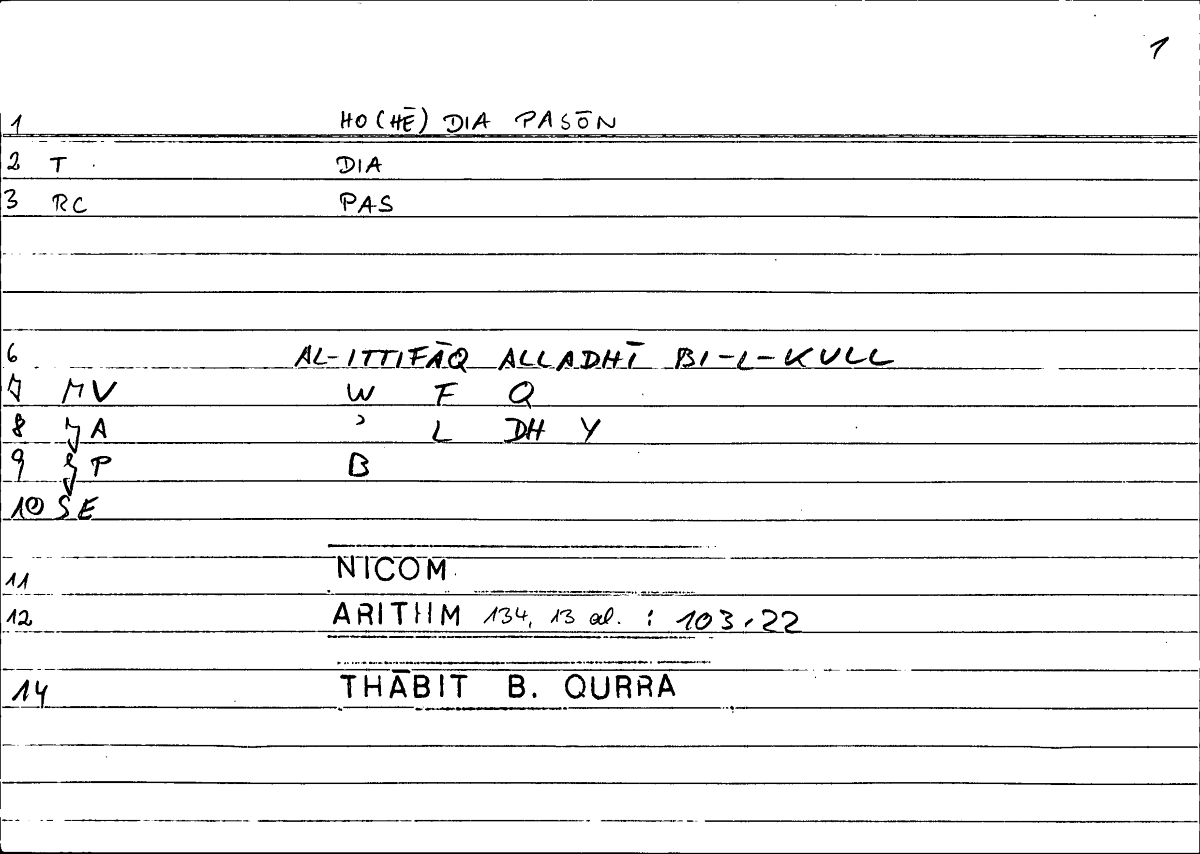 1
1 HO (HĒ) DIA PASŌN
2 T DIA
3 RC PAS
6 AL-ITTIFĀQ ALLADHĪ BI-L-KULL
7 MV W F Q
8 A ʾ L DH Y
9 P B
10 SE
11 NICOM.
12 ARITHM 134, 13 al. : 103,22
14 THĀBIT B. QURRA